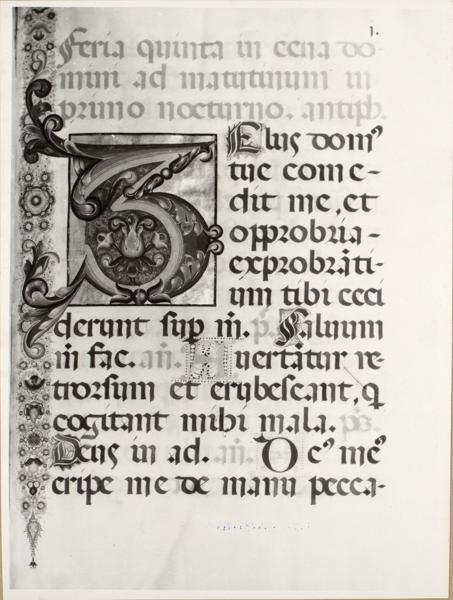 1.
Feria quinta in cena do-
mini ad matutinum in
primo nocturno. antiph.
Elus domꝰ
tue come-
dit me, et
opprobria-
exprobrãti-
um tibi ceci
derunt sup m̃. p̃. Saluum
m̃ fac. añ. Auertãtur re-
trorsum et erubescant, q̃
cogitant mihi mala. p̃s.
Deus in ad. añ. De
eripe me de manu pecca-